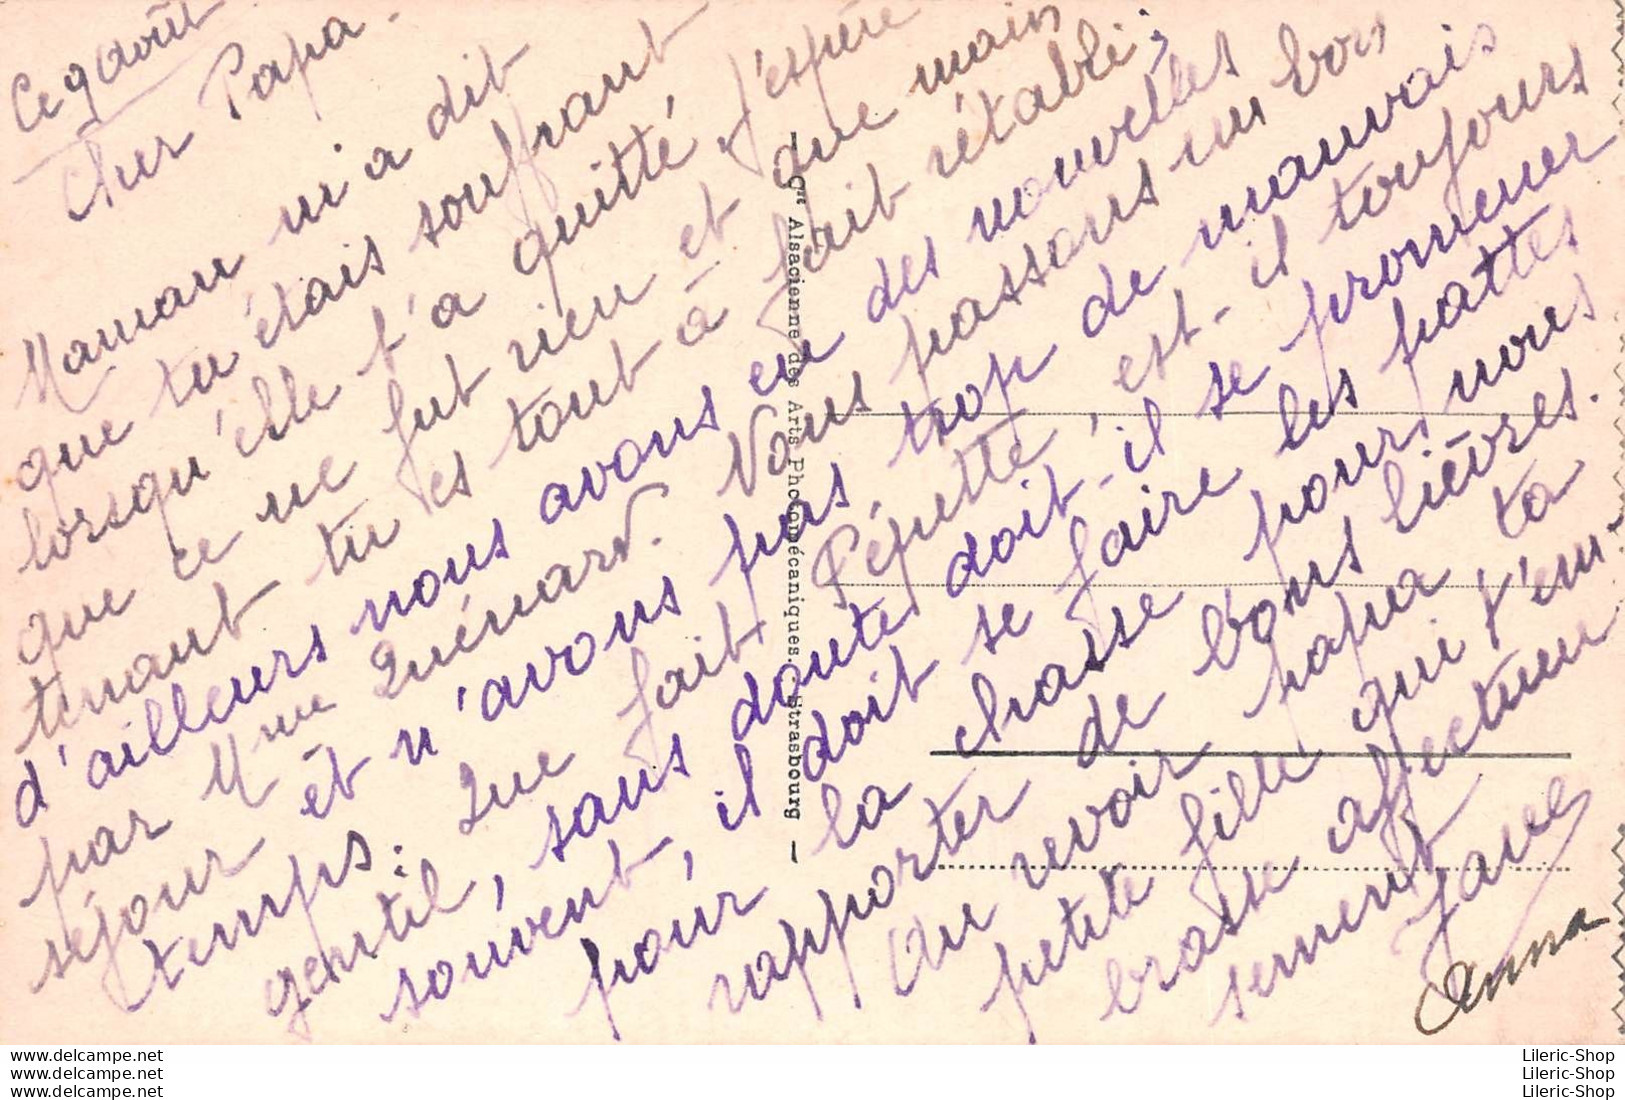 Ce 9 Août
Cher Papa.
Maman m'a dit
que tu étais souffrant
lorsqu'elle t'a quitté j'espère
que ce ne fut rien et que main
tenant tu es tout à fait rétabli;
d'ailleurs nous avons eu des nouvelles
par Mme Quénard. Nous passons un bon
séjour et n'avons pas trop de mauvais
temps. Que fait Pépette, est-il toujours
gentil, sans doute doit-il se promener
souvent, il doit se faire les pattes
pour la chasse pour nous
rapporter de bons lièvres.
Au revoir papa ta
petite fille qui t'em-
brasse affectueu
sement
Jane
Anna
— Cie Alsacienne des Arts Photomécaniques. - Strasbourg —
www.delcampe.net
www.delcampe.net
www.delcampe.net
Lileric-Shop
Lileric-Shop
Lileric-Shop